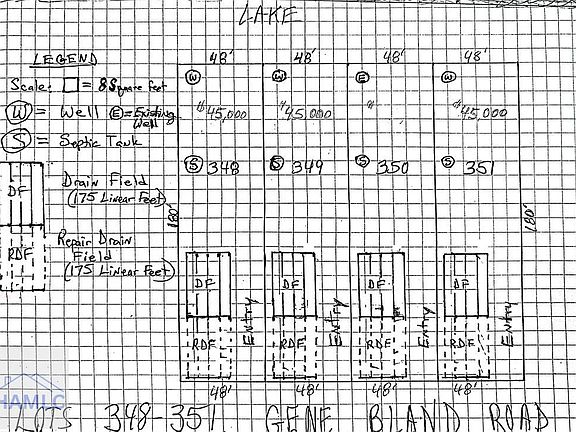 LAKE
LEGEND
Scale: = 8 Square feet
W = Well E = Existing Well
S = Septic Tank
DF Drain Field
(175 Linear Feet)
RDF Repair Drain Field
(175 Linear Feet)
48' 48' 48' 48'
W W E W
$45,000 $45,000 " $45,000
S 348 S 349 S 350 S 351
180' 180'
DF DF DF DF
Entry Entry Entry Entry
RDF RDF RDF RDF
48' 48' 48' 48'
LOTS 348-351 GENE BLAND ROAD
HAMLC